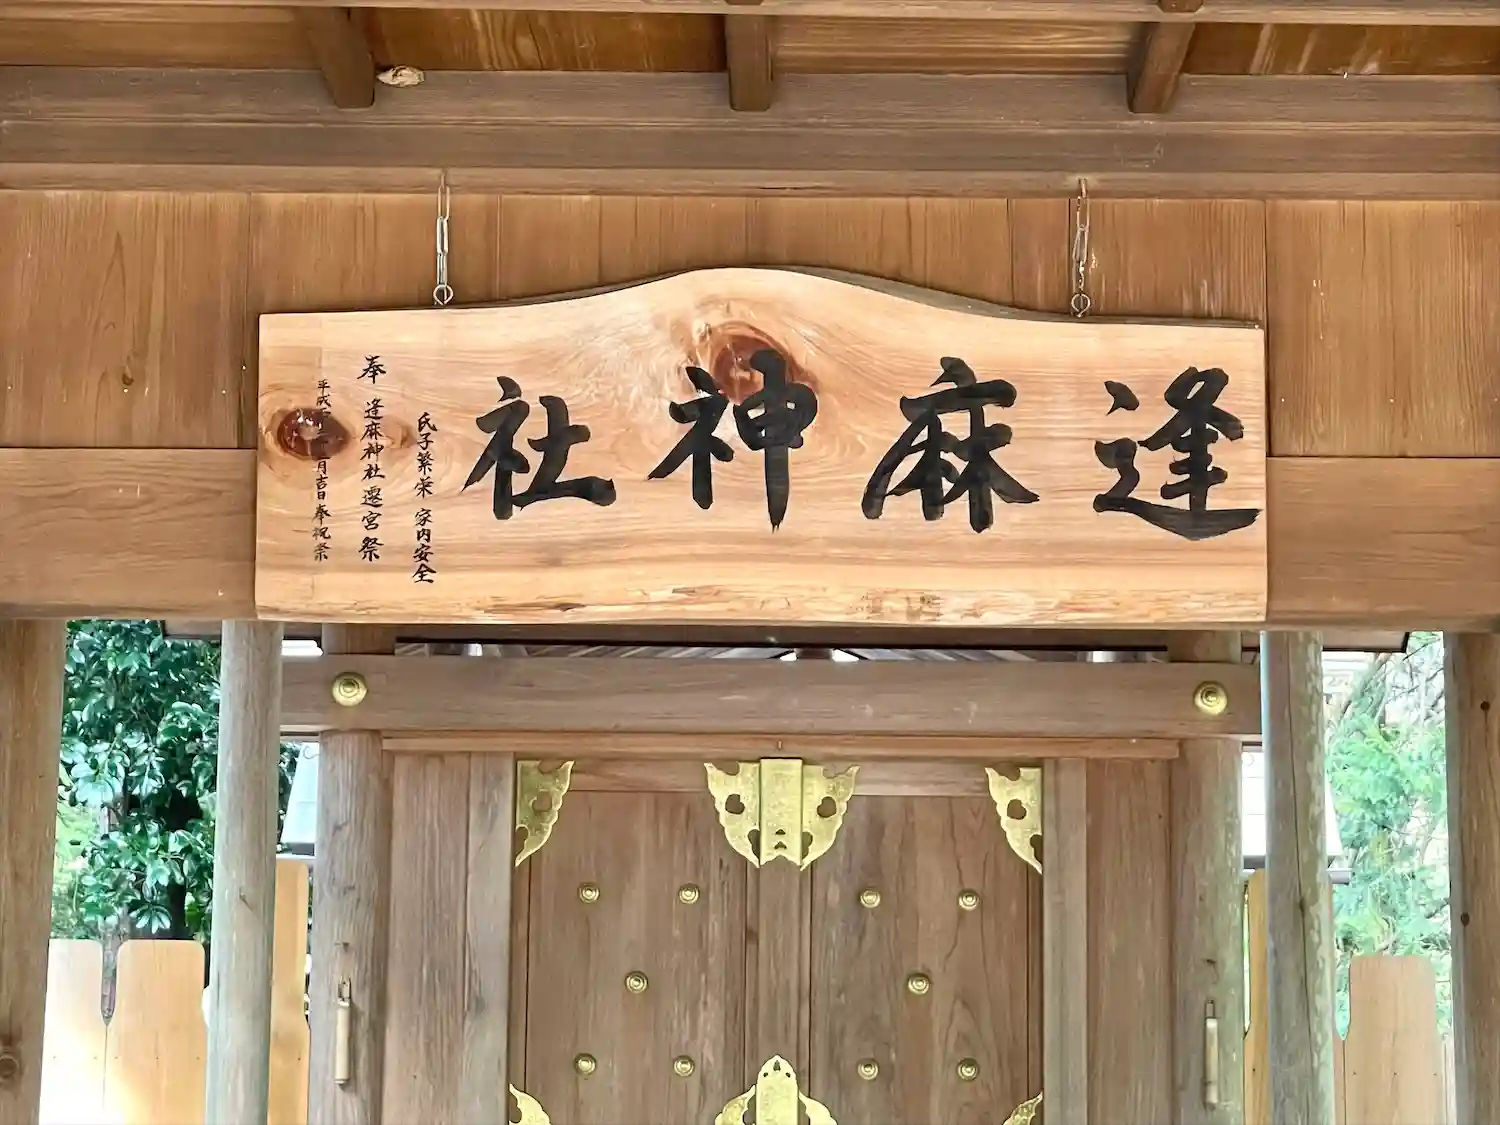 逢麻神社
氏子繁栄 家内安全
奉 逢麻神社遷宮祭
平成 月吉日奉祝祭